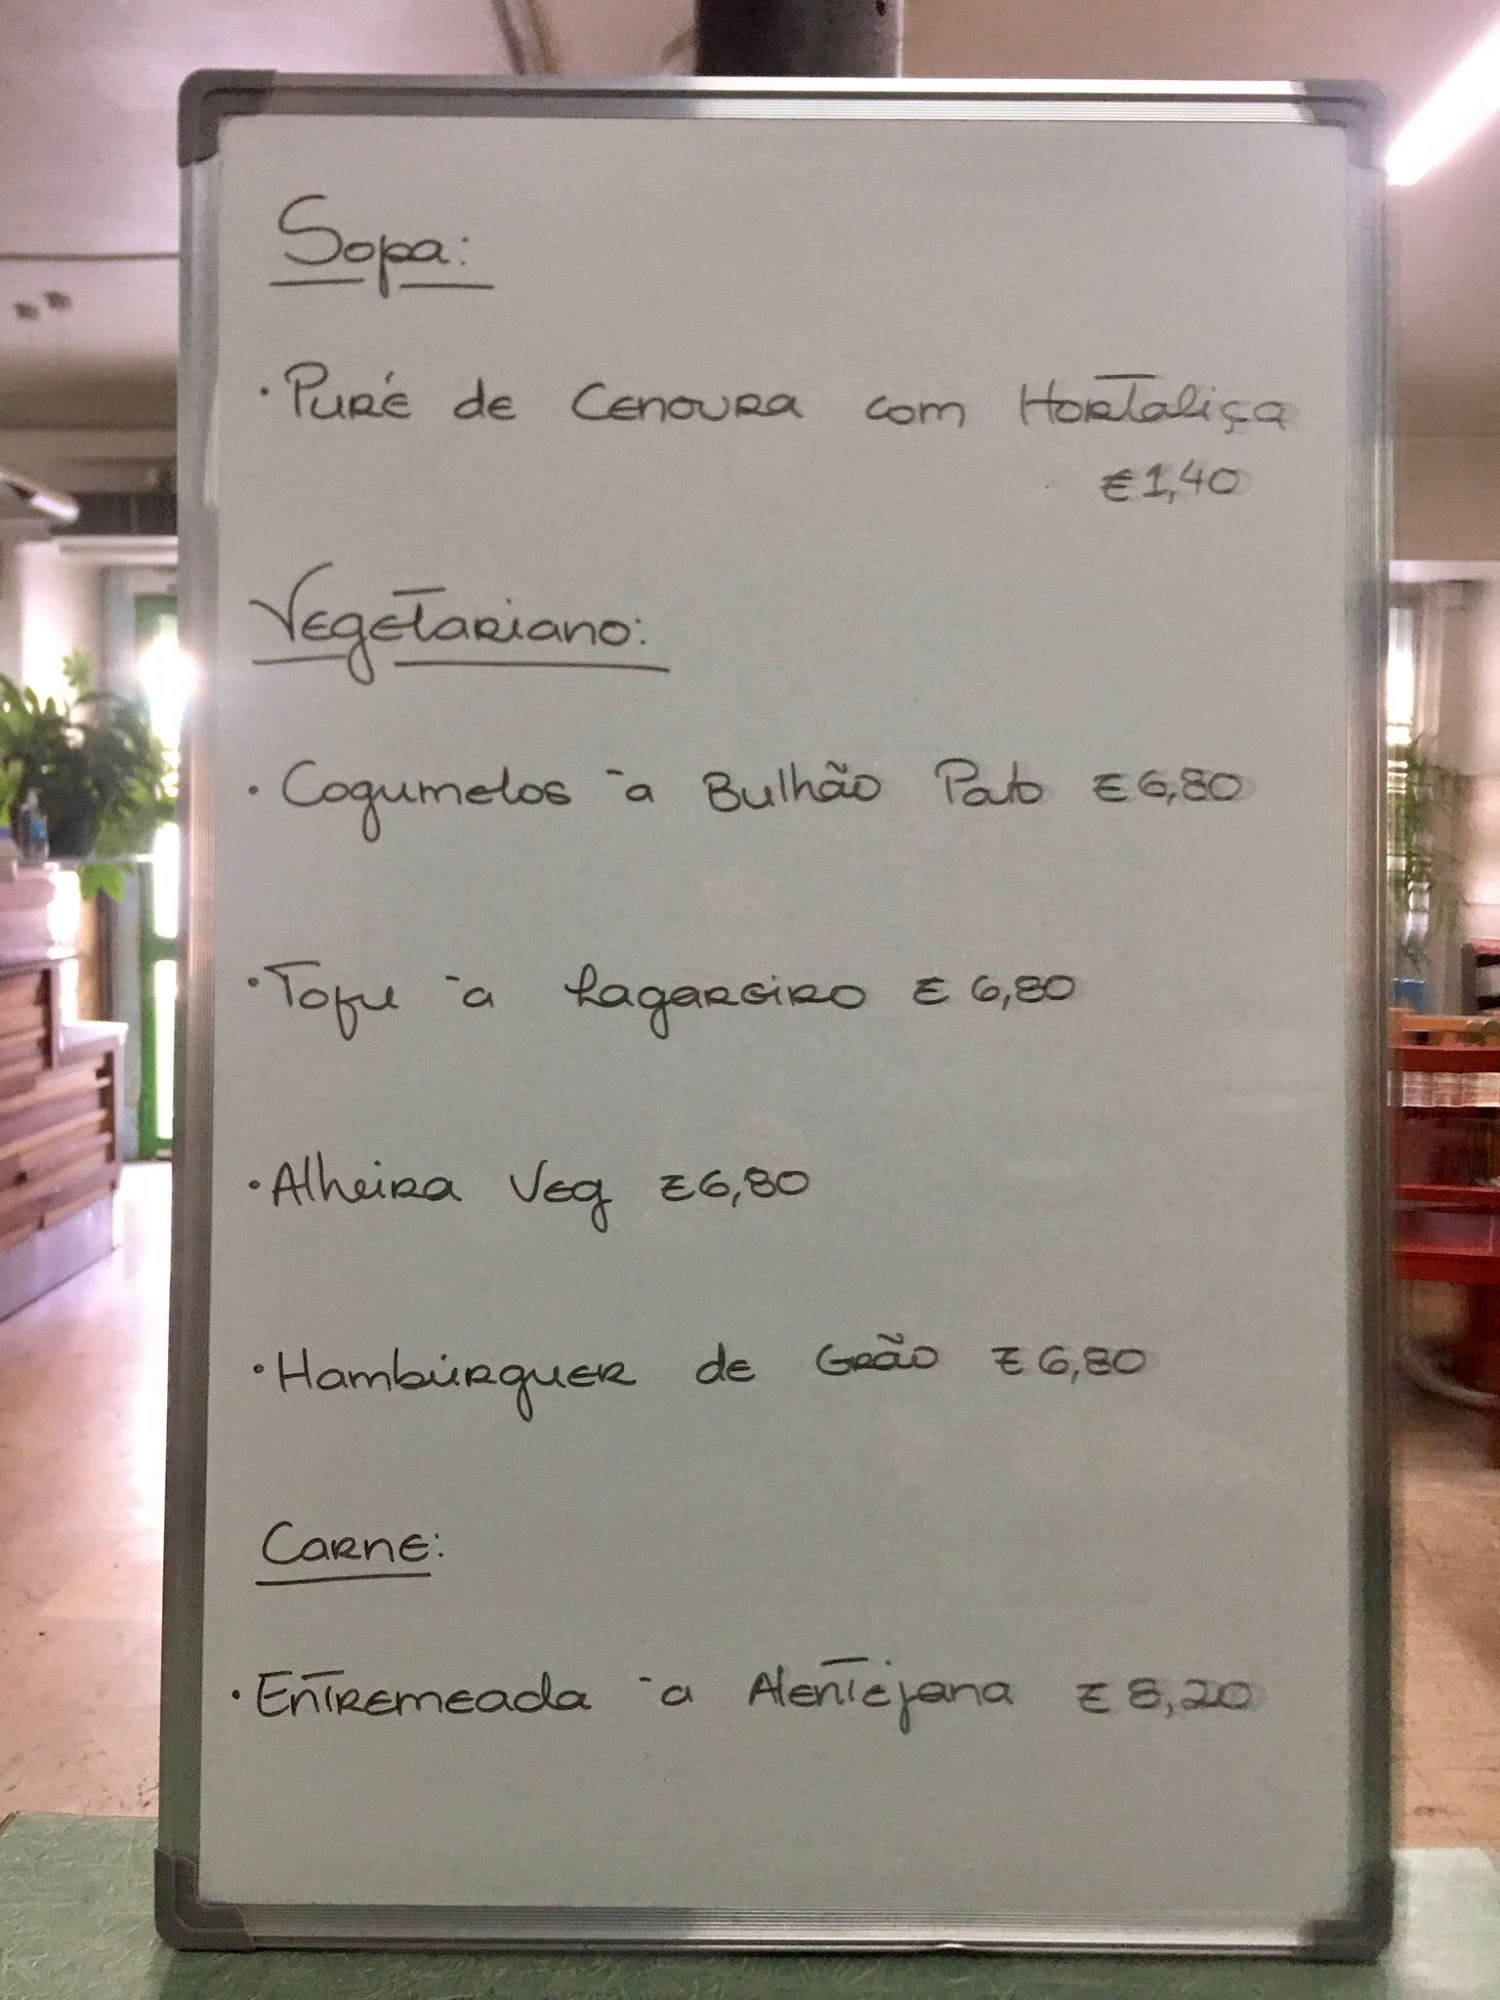 Sopa:
· Puré de Cenoura com Hortaliça
€1,40
Vegetariano:
· Cogumelos à Bulhão Pato €6,80
· Tofu à Lagareiro €6,80
· Alheira Veg €6,80
· Hambúrguer de Grão €6,80
Carne:
· Entremeada à Alentejana €8,20